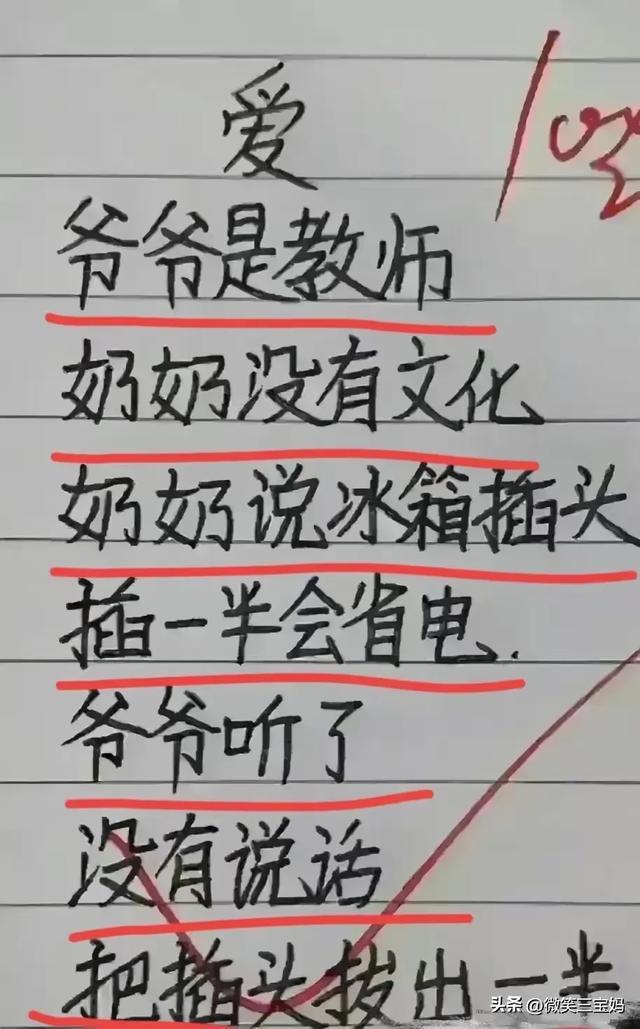 爱
爷爷是教师
奶奶没有文化
奶奶说冰箱插头
插一半会省电.
爷爷听了
没有说话
把插头拔出一半
头条 @微笑三宝妈